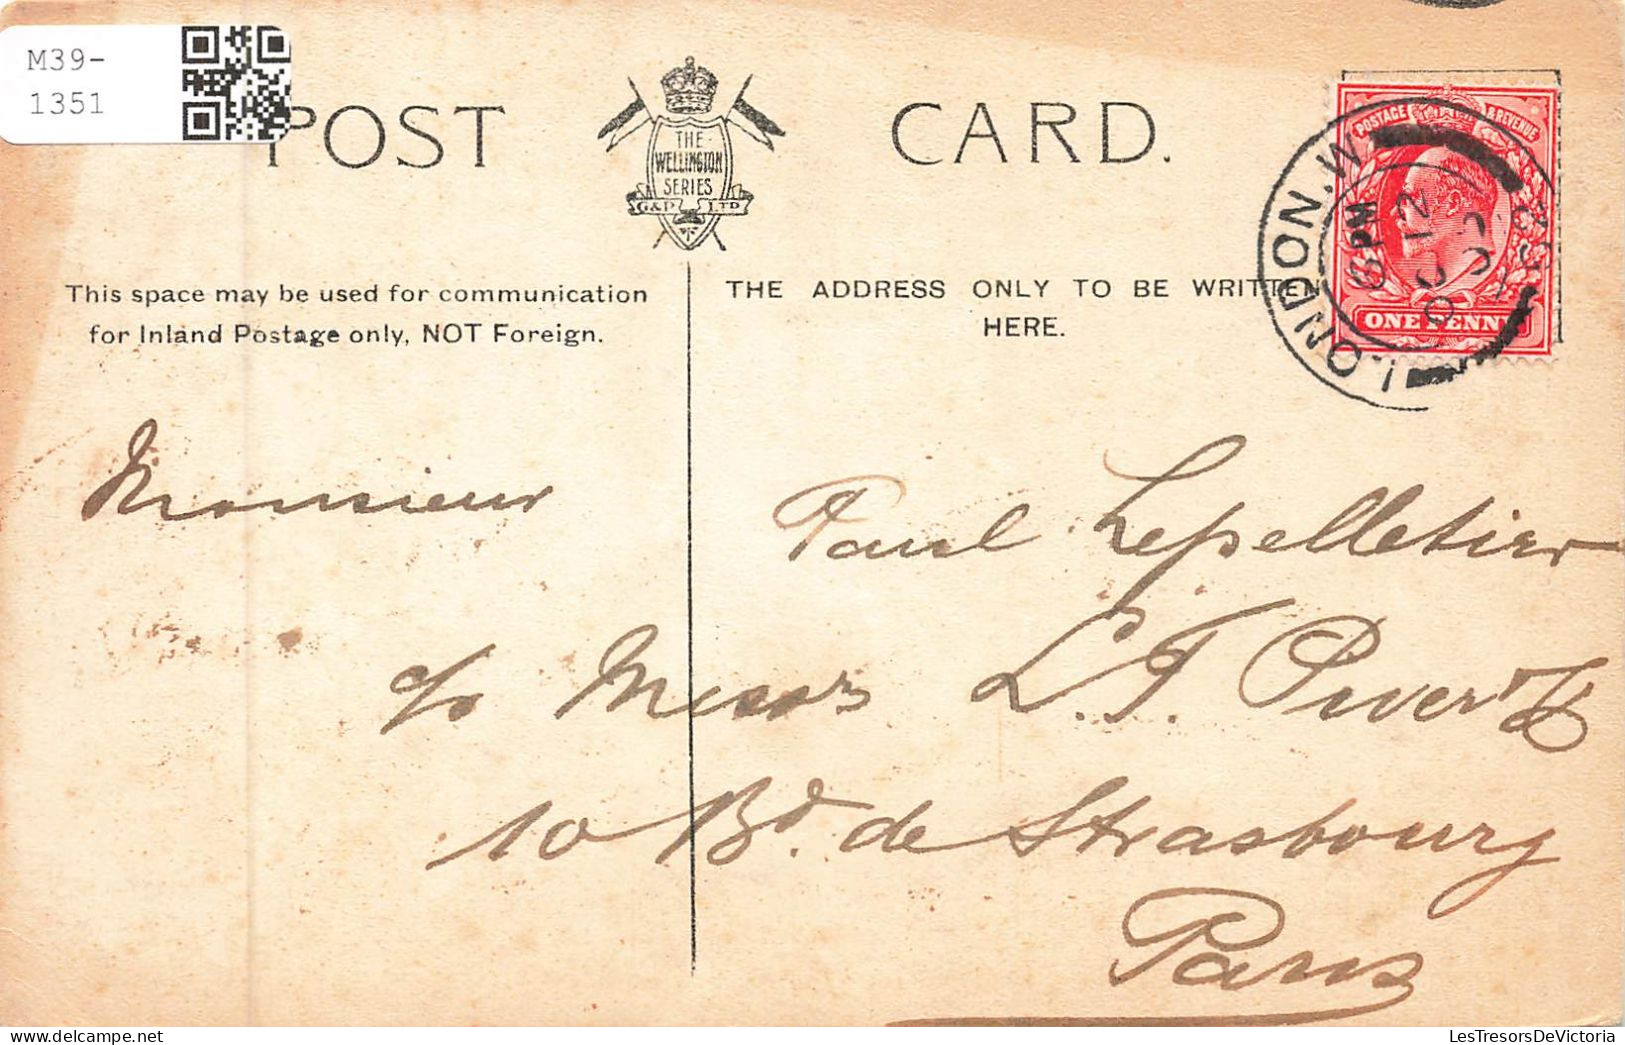 M39-
1351
POST CARD.
THE
WELLINGTON
SERIES
G&P LTD
This space may be used for communication
for Inland Postage only, NOT Foreign.
THE ADDRESS ONLY TO BE WRITTEN
HERE.
POSTAGE & REVENUE
ONE PENNY
LONDON. W
6 PM
OC 12
Monsieur
Paul Lepelletier
c/o Messrs L. T. Piver
10 Bd. de Strasbourg
Paris
LesTresorsDeVictoria